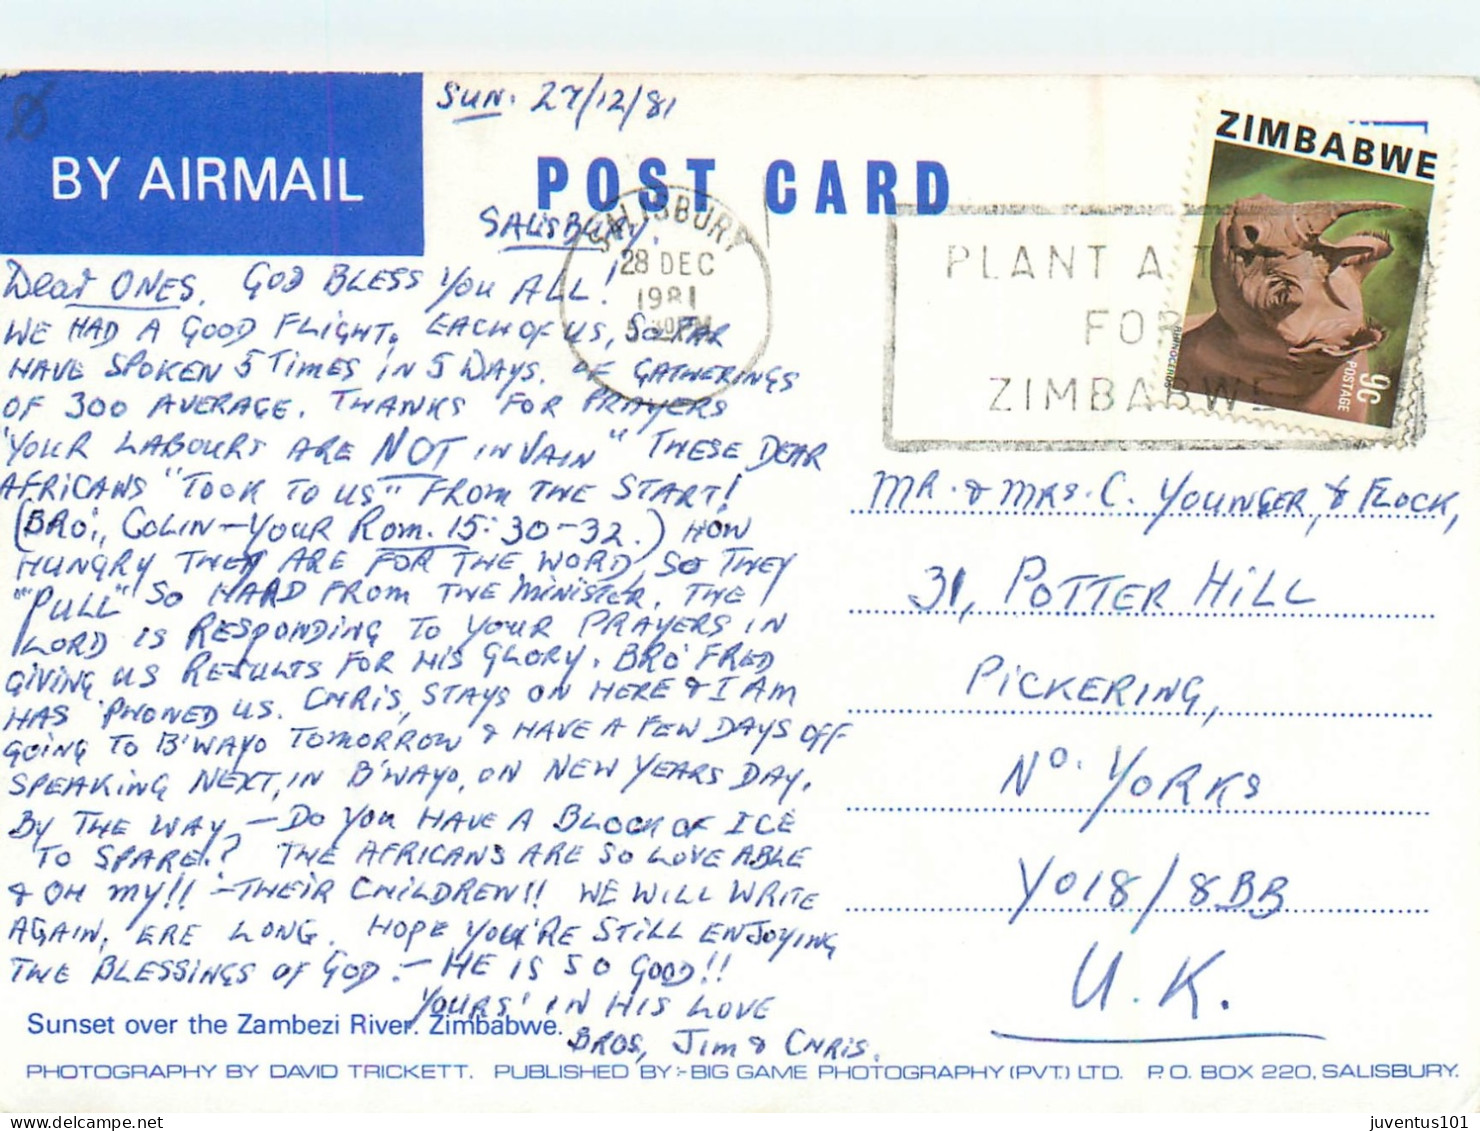 Sun. 27/12/81
BY AIRMAIL
POST CARD
ZIMBABWE
RHINOCEROS
POSTAGE
9c
SALISBURY.
SALISBURY
28 DEC
1981
5 30PM
PLANT A T
FOR
ZIMBABWE
Dear ONES. GOD BLESS YOU ALL!
WE HAD A GOOD FLIGHT. EACH OF US, SO FAR
HAVE SPOKEN 5 TIMES IN 5 DAYS. OF GATHERINGS
OF 300 AVERAGE. THANKS FOR PRAYERS
"YOUR LABOURS ARE NOT IN VAIN" THESE DEAR
AFRICANS "TOOK TO US" FROM THE START!
(BRO., COLIN - YOUR ROM. 15: 30-32.) HOW
HUNGRY THEY ARE FOR THE WORD, SO THEY
"PULL" SO HARD FROM THE MINISTER. THE
LORD IS RESPONDING TO YOUR PRAYERS IN
GIVING US RESULTS FOR HIS GLORY. BRO FRED
HAS 'PHONED US. CHRIS, STAYS ON HERE & I AM
GOING TO B'WAYO TOMORROW & HAVE A FEW DAYS OFF
SPEAKING NEXT, IN B'WAYO, ON NEW YEARS DAY.
BY THE WAY, - DO YOU HAVE A BLOCK OF ICE
TO SPARE.? THE AFRICANS ARE SO LOVEABLE
& OH MY!! - THEIR CHILDREN!! WE WILL WRITE
AGAIN, ERE LONG. HOPE YOU'RE STILL ENJOYING
THE BLESSINGS OF GOD. - HE IS SO GOOD!!
YOURS' IN HIS LOVE
BROS, JIM & CHRIS.
MR. & MRS. C. YOUNGER, & FLOCK,
31, POTTER HILL
PICKERING,
No. YORKS
YO18/8BB
U.K.
Sunset over the Zambezi River. Zimbabwe.
PHOTOGRAPHY BY DAVID TRICKETT. PUBLISHED BY:-BIG GAME PHOTOGRAPHY (PVT.) LTD. P.O. BOX 220, SALISBURY.
juventus101